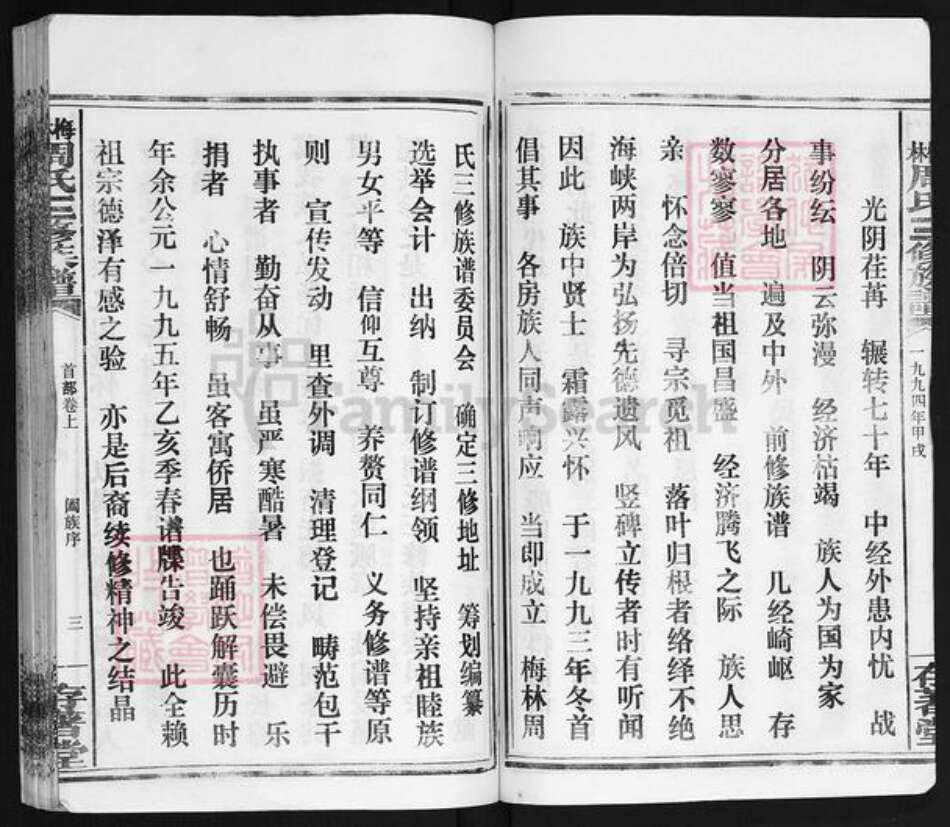 林周氏三修族譜
一九九四年甲戌
存著堂
光阴荏苒 辗转七十年 中经外患内忧 战
事纷纭 阴云弥漫 经济枯竭 族人为国为家
分居各地 遍及中外 前修族谱 几经崎岖 存
数寥寥 值当祖国昌盛 经济腾飞之际 族人思
亲 怀念倍切 寻宗觅祖 落叶归根者络绎不绝
海峡两岸为弘扬先德遗风 竖碑立传者时有听闻
因此 族中贤士 霜露兴怀 于一九九三年冬首
倡其事 各房族人同声响应 当即成立 梅林周
氏三修族谱委员会 确定三修地址 筹划编纂
选举会计 出纳 制订修谱纲领 坚持亲祖睦族
男女平等 信仰互尊 养赘同仁 义务修谱等原
则 宣传发动 里查外调 清理登记 畴范包干
执事者 勤奋从事 虽严寒酷暑 未偿畏避 乐
捐者 心情舒畅 虽客寓侨居 也踊跃解囊历时
年余公元一九九五年乙亥季春谱牒告竣 此全赖
祖宗德泽有感之验 亦是后裔续修精神之结晶
梅周氏三修族譜
首部卷上
阖族序
三
存著堂
FamilySearch